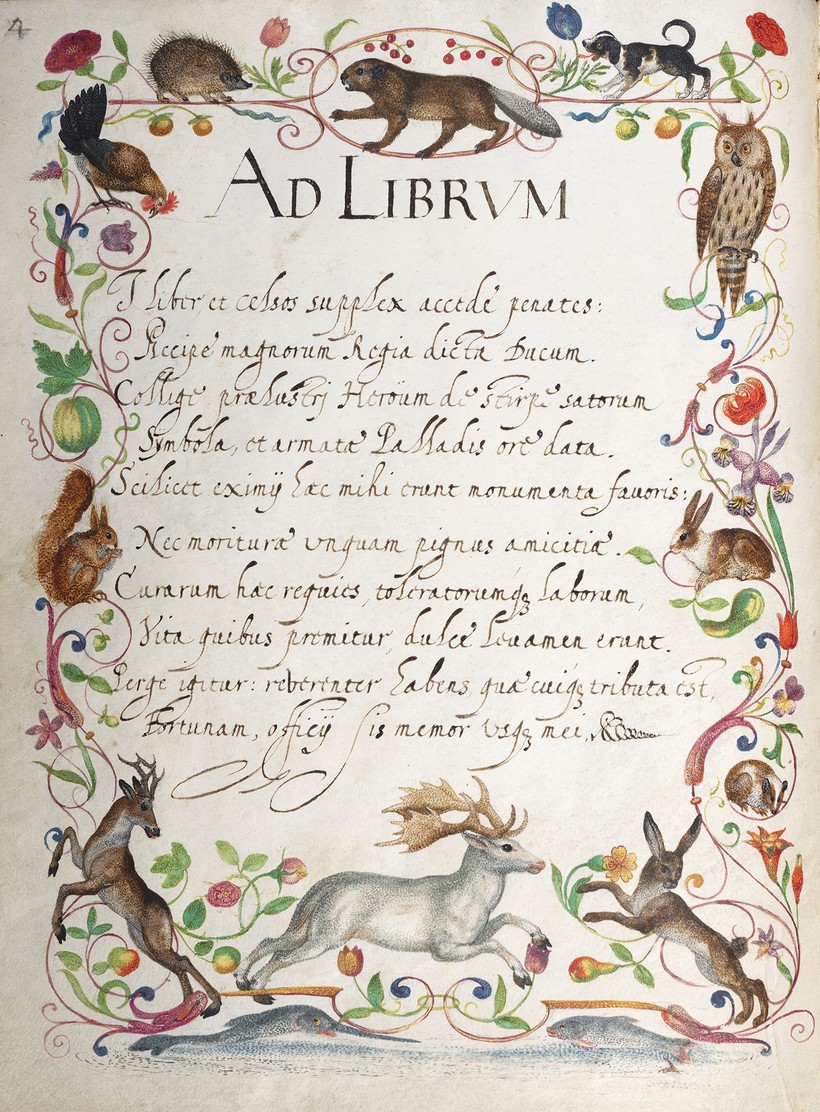 4
AD LIBRVM
I liber, et celsos supplex accede penates:
Accipe magnorum Regia dicta Ducum.
Collige, prælustrj Heröum de stirpe satorum
Symbola, et armatæ Palladis ore data.
Scilicet eximij hæc mihi erunt monumenta fauoris:
Nec morituræ vnguam pignus amicitiæ.
Curarum hæc requies, toleratorumq3 laborum,
Vita quibus premitur, dulce leuamen erunt.
Perge igitur: reverenter habens, quæ cuiq3 tributa est,
Fortunam, officij sis memor vsq3 mei.